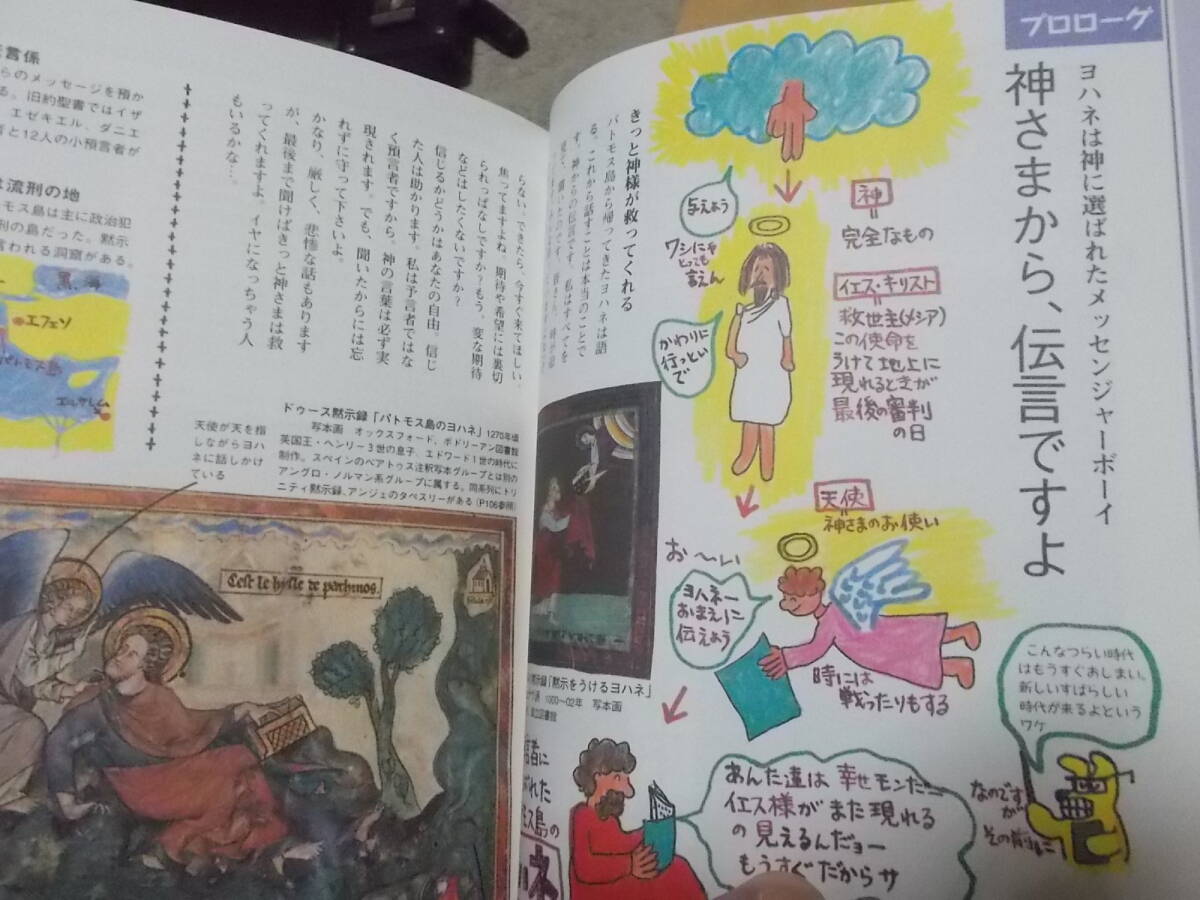 プロローグ
ヨハネは神に選ばれたメッセンジャーボーイ
神さまから、伝言ですよ
与えよう
ワシにゃ
とっても
言えん
神
完全なもの
イエス・キリスト
救世主(メシア)
この使命を
うけて地上に
現れるときが
最後の審判
の日
かわりに
行っといで
天使
神さまのお使い
お〜い
ヨハネー
おまえに
伝えよう
時には
戦ったりもする
こんなつらい時代
はもうすぐおしまい。
新しいすばらしい
時代が来るよという
ワケ
なのです
が
その前に
あんた達は幸せモンだー
イエス様がまた現れる
の見えるんだョー
もうすぐだからサ
言者に
れた
モス島の
ネ
きっと神様が救ってくれる
パトモス島から帰ってきたヨハネは語
る。これから話すことは本当のことで
す。神からの伝言です。私はすべてを
見て、聞いたのです。
黙示録「黙示をうけるヨハネ」
1000〜02年 写本画
図書館
らない。できたら、今すぐ来てほしい。
焦ってますよね。期待や希望には裏切
られっぱなしですか?もう、変な期待
などはしたくないですか?
信じるかどうかはあなたの自由。信じ
た人は助かります。私は予言者ではな
く預言者ですから。神の言葉は必ず実
現されます。でも、聞いたからには忘
れずに守って下さいよ。
かなり、厳しく、悲惨な話もあります
が、最後まで聞けばきっと神さまは救
ってくれますよ。イヤになっちゃう人
もいるかな…。
ドゥース黙示録「パトモス島のヨハネ」1270年頃
写本画 オックスフォード、ボドリーアン図書館
英国王・ヘンリー3世の息子、エドワード1世の時代に
制作。スペインのベアトゥス注釈写本グループとは別の
アングロ・ノルマン系グループに属する。同系列にトリ
ニティ黙示録、アンジェのタペスリーがある(P106参照)
天使が天を指
しながらヨハ
ネに話しかけ
ている
言係
らのメッセージを預か
る。旧約聖書ではイザ
エゼキエル、ダニエ
と12人の小預言者が
は流刑の地
モス島は主に政治犯
刑の島だった。黙示
言われる洞窟がある。
黒海
エフェソ
パトモス島
エルサレム
Cest le hysle de pathmos.